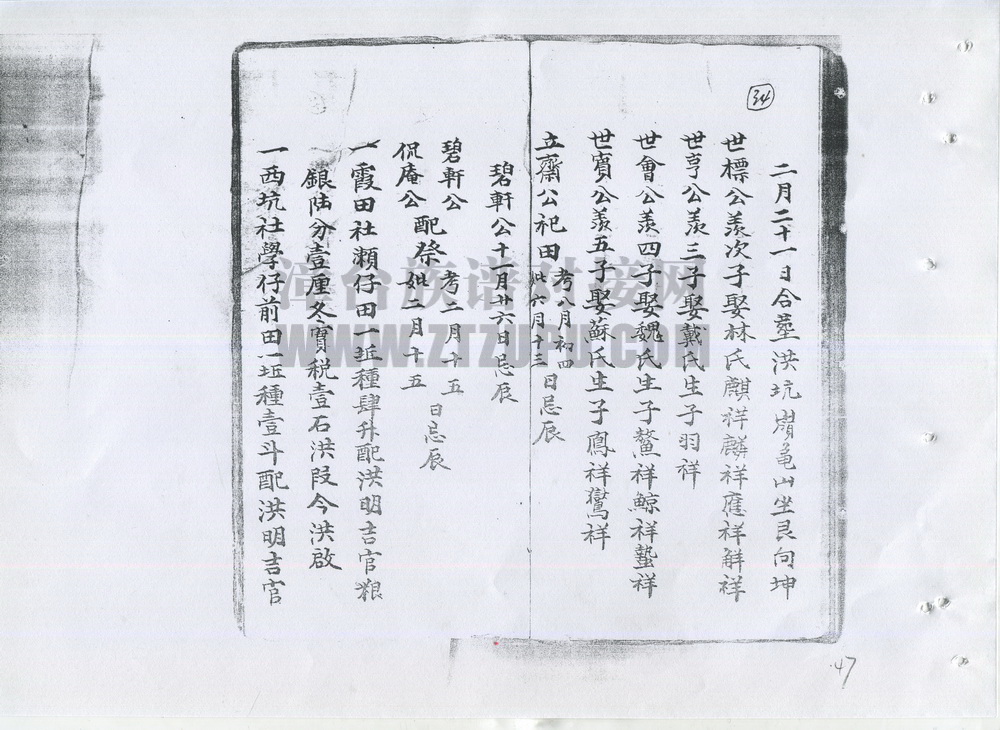 34
二月二十一日合塟洪坑嶺龜山坐艮向坤
世標公羨次子娶林氏麒祥麟祥應祥觧祥
世亨公羨三子娶戴氏生子羽祥
世會公羨四子娶魏氏生子鰲祥鯨祥蟄祥
世賓公羨五子娶蘇氏生子鳳祥鸞祥
立齋公祀田考八月初四妣六月十三日忌辰
碧軒公十一月廿六日忌辰
碧軒公侃庵公配祭考二月十五妣二月十五日忌辰
一霞田社瀨仔田一坵種肆升配洪明吉官粮
銀陆分壹厘冬實税壹石洪段今洪啟
一西坑社學仔前田一坵種壹斗配洪明吉官
漳台族谱对接网
WWW.ZTZUPU.COM
47